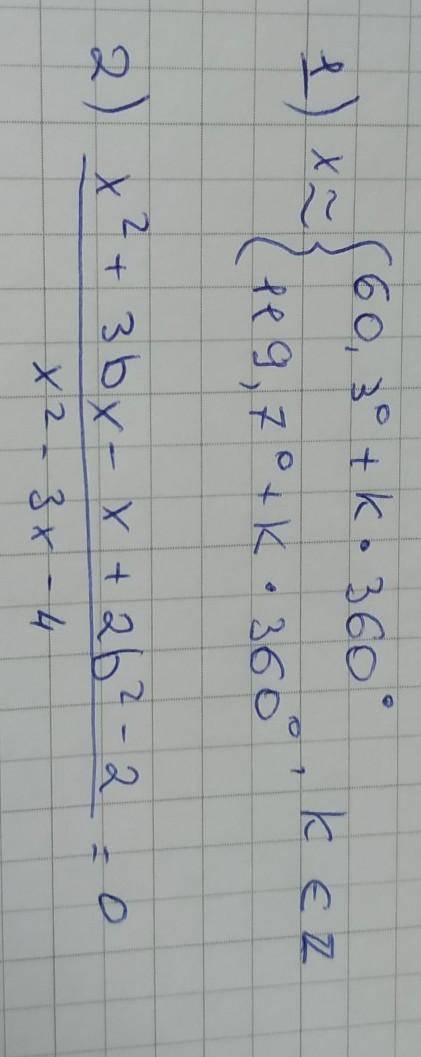 1) x ≈ { 60,3° + k · 360°
{ 119,7° + k · 360°, k ∈ Z
2) x² + 3bx - x + 2b² - 2
x² - 3x - 4 = 0